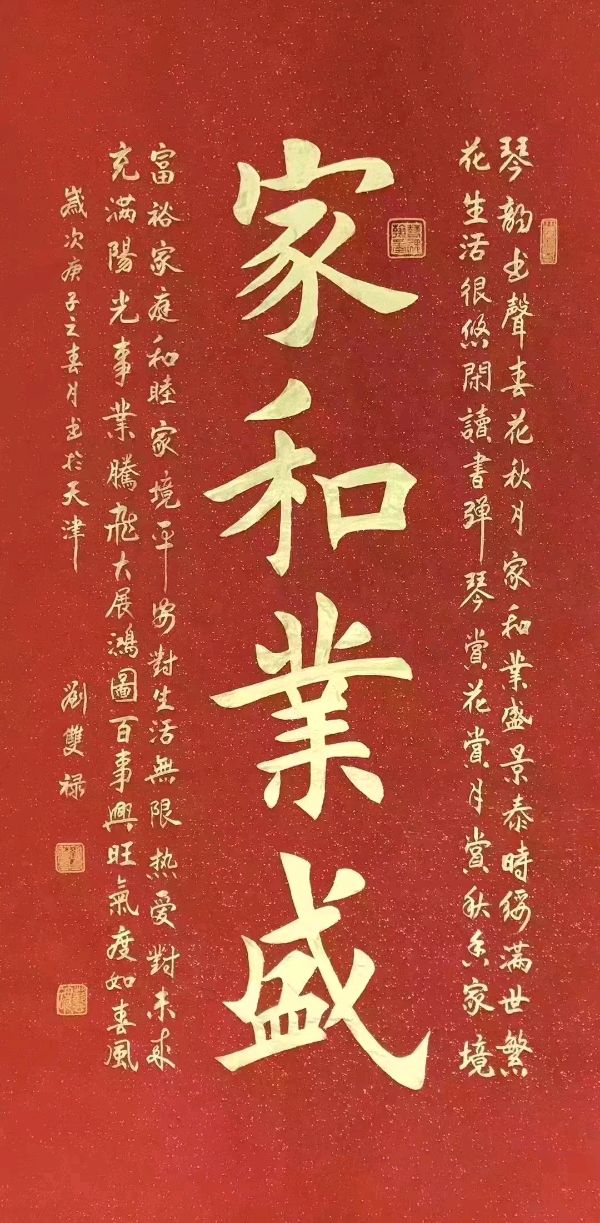 琴韵书聲春花秋月家和業盛景泰時綏满世繁
花生活很悠閑讀書弹琴赏花赏月赏秋色家境
家和業盛
富裕家庭和睦家境平安對生活無限热爱對未来
充满陽光事業騰飛大展鴻圖百事興旺氣度如春風
歲次庚子之春月书於天津
劉雙禄